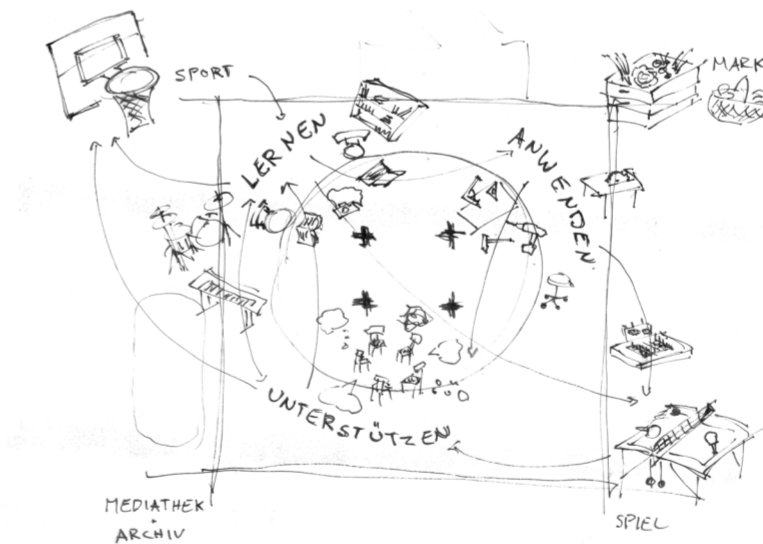 SPORT
MARK
LERNEN
ANWENDEN
UNTERSTÜTZEN
MEDIATHEK
+
ARCHIV
SPIEL